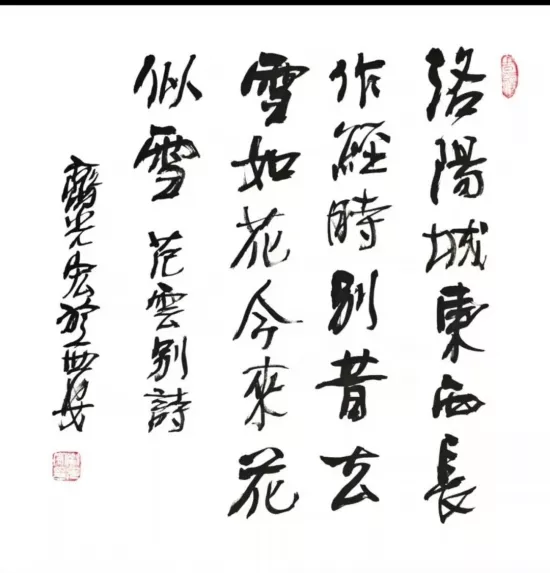 洛陽城東西長
作經時別昔去
雪如花今來花
似雪 范雲別詩
齊光宏於西安